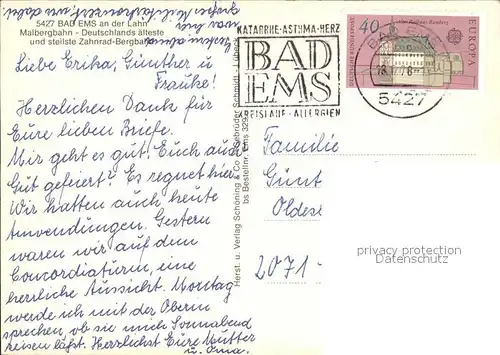 5427 BAD EMS an der Lahn
Malbergbahn - Deutschlands älteste
und steilste Zahnrad-Bergbahn
Liebe Erika, Günther u
Frauke!
Herzlichen Dank für
Eure lieben Briefe.
Mir geht es gut. Euch auch?
Gut gefeiert? Es regnet hier.
Wir hatten auch heute
Anwendungen. Gestern
waren wir auf dem
Concordiaturm, eine
herrliche Aussicht. Montag
werde ich mit der Oberin
sprechen, ob sie mich Sonnabend
reisen läßt. Herzlichst Eure Mutter
u. Oma.
Herst. u. Verlag Schöning & Co + Gebrüder Schmidt, Lübeck
bs Bestellnr. Ems 329
KATARRHE·ASTHMA·HERZ
BAD
EMS
KREISLAUF·ALLERGIEN
BAD EMS
5427
40
EUROPA
Familie
Günt
Oldes
2071
privacy protection
Datenschutz